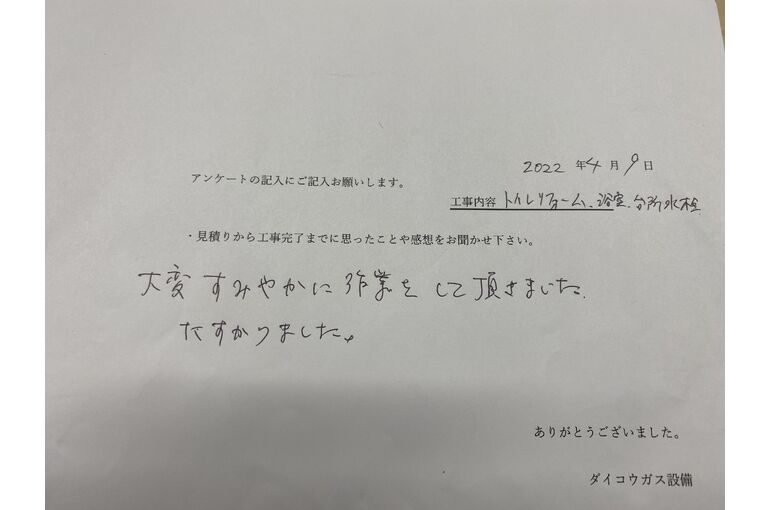 2022 年 4 月 9 日
アンケートの記入にご記入お願いします。
工事内容 トイレリフォーム、浴室、台所水栓
・見積りから工事完了までに思ったことや感想をお聞かせ下さい。
大変すみやかに作業をして頂きました。
たすかりました。
ありがとうございました。
ダイコウガス設備